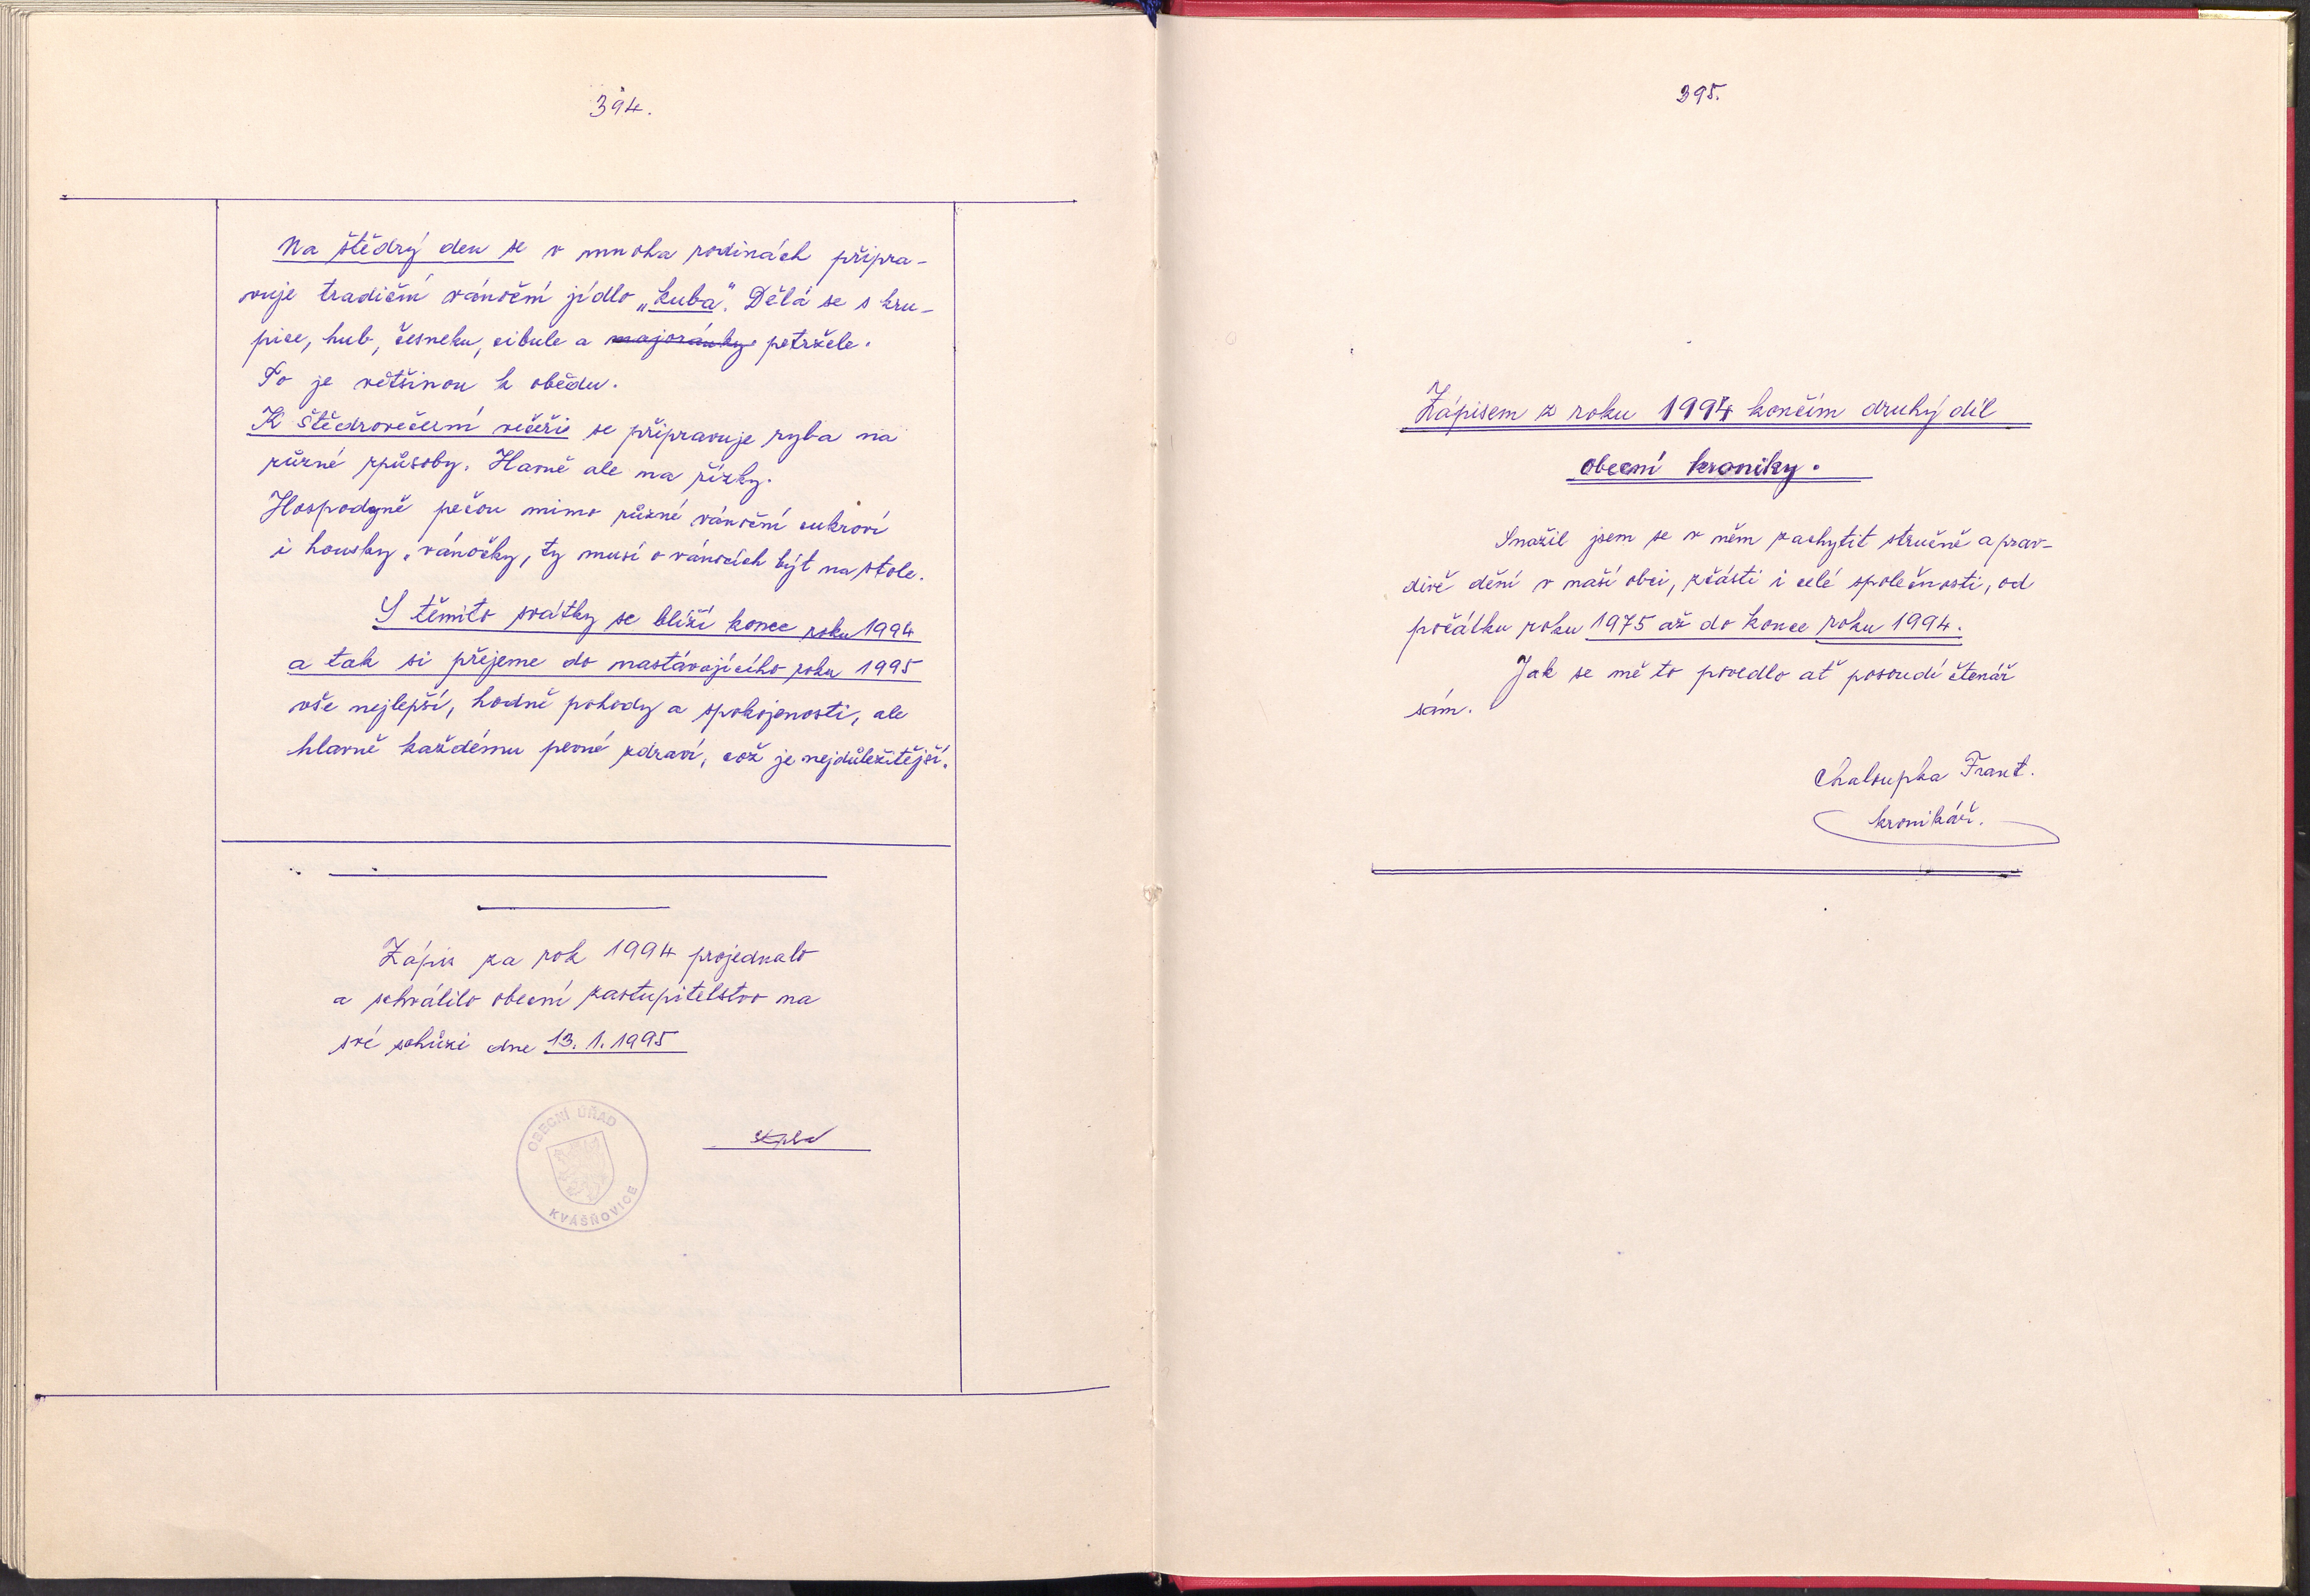 394.
Na štědrý den se v mnoha rodinách připra-
vuje tradiční vánoční jídlo „kuba". Dělá se s kru-
pice, hub, česneku, cibule a majoránky petržele.
To je většinou k obědu.
K štědrovečerní večeři se připravuje ryba na
různé způsoby. Havně ale na řízky.
Hospodyně pečou mimo různé vánoční cukroví
i housky, vánočky, ty musí o vánocích být na stole.
S těmito svátky se blíží konec roku 1994
a tak si přejeme do nastávajícího roku 1995
vše nejlepší, hodně pohody a spokojenosti, ale
hlavně každému pevné zdraví, což je nejdůležitější.
Zápis za rok 1994 projednalo
a schválilo obecní zastupitelstvo na
své schůzi dne 13. 1. 1995
OBECNÍ ÚŘAD
KVÁŠŇOVICE
395.
Zápisem z roku 1994 končím druhý díl
obecní kroniky.
Snažil jsem se v něm zachytit stručně a prav-
divě dění v naší obci, zčásti i celé společnosti, od
počátku roku 1975 až do konce roku 1994.
Jak se mě to povedlo ať posoudí čtenář
sám.
Chaloupka Frant.
kronikář.